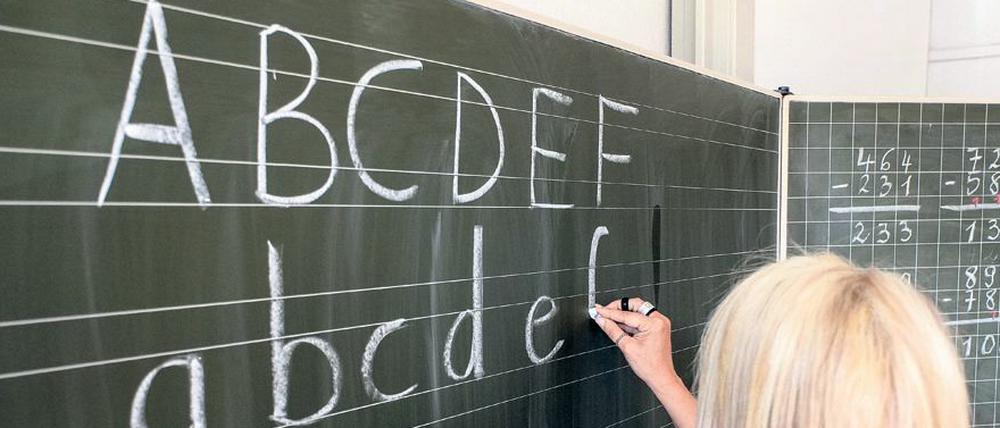 A B C D E F
a b c d e f
464
- 231
233
72
- 58
13
89
- 78
10